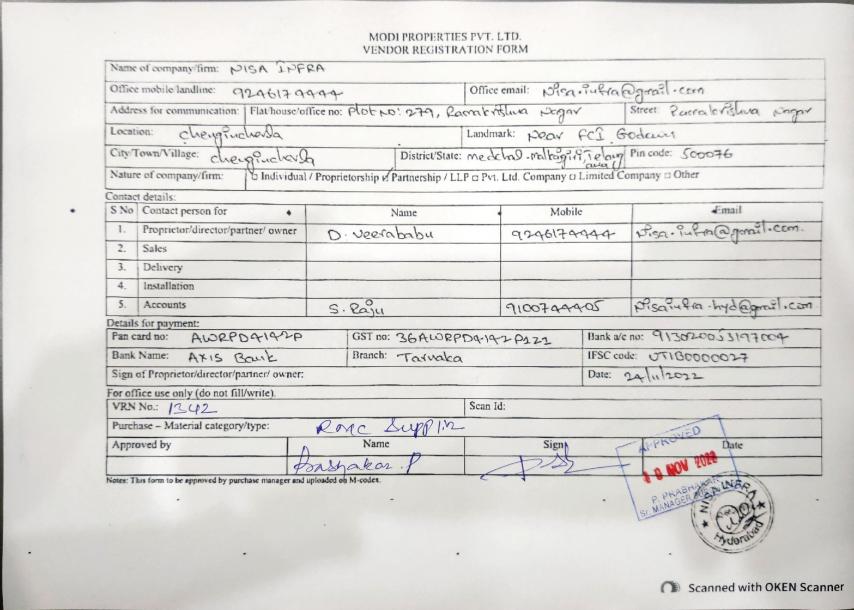 MODI PROPERTIES PVT. LTD.
VENDOR REGISTRATION FORM
Name of company/firm: NISA INFRA
Office mobile/landline: 9246174444 Office email: Nisa.infra@gmail.com
Address for communication: Flat/house/office no: Plot No: 279, Ramakrishna Nagar Street: Ramakrishna Nagar
Location: Chengicherla Landmark: Near FCI Godown
City/Town/Village: Chengicherla District/State: Medchal-malkajgiri, Telangana Pin code: 500076
Nature of company/firm: Individual / Proprietorship Partnership / LLP □ Pvt. Ltd. Company □ Limited Company □ Other
Contact details:
S No Contact person for Name Mobile Email
1. Proprietor/director/partner/ owner D. Veerababu 9246174444 Nisa.infra@gmail.com.
2. Sales
3. Delivery
4. Installation
5. Accounts S. Raju 9100744405 Nisainfra.hyd@gmail.com
Details for payment:
Pan card no: AWRPD4142P GST no: 36AWRPD4142P1Z1 Bank a/c no: 913020053197004
Bank Name: AXIS Bank Branch: Tarnaka IFSC code: UTIB0000027
Sign of Proprietor/director/partner/ owner: Date: 24/11/2022
For office use only (do not fill/write).
VRN No.: 1342 Scan Id:
Purchase – Material category/type: RMC Supplier
Approved by Name Sign Date
Prabhakar. P
APPROVED
NOV 2022
P. PRABHAKAR
Sr. MANAGER
Notes: This form to be approved by purchase manager and uploaded on M-codes.
NISA INFRA
Hyderabad
Scanned with OKEN Scanner